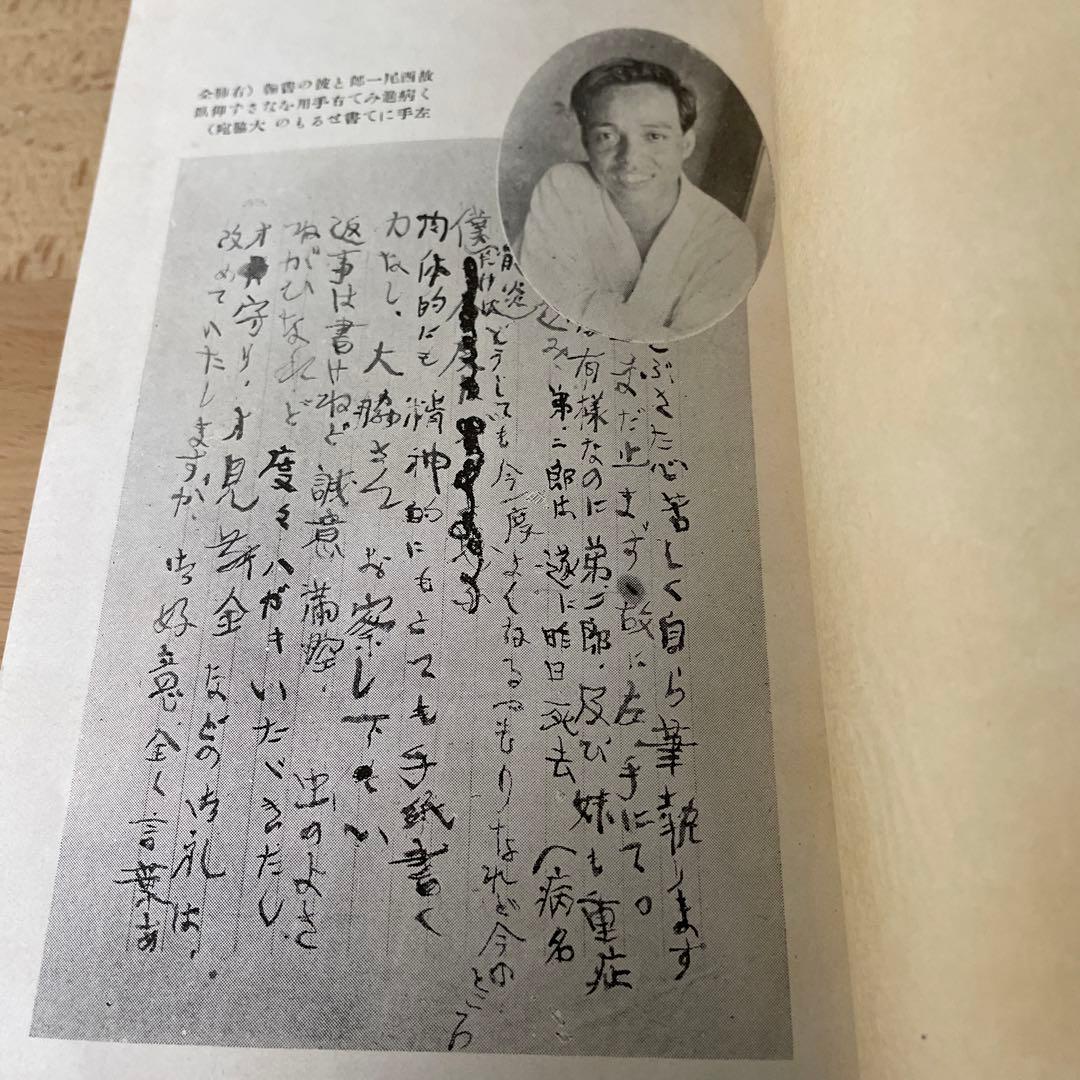 故西尾一郎と彼の書翰(右肺全
く病進みて右手用をなさず仰臥
左手にて書せるもの 大脇宛)
心苦しく自ら筆執ります
まだ止まず故に左手にて。
有様なのに弟二郎、及び妹も重症
弟、二郎は遂に昨日死去(病名
だけはどうしても今一度よくなるつもりなれど今のところ
僕
肉体的にも精神的にもとても手紙書く
力なし、大脇さんお察し下さい
返事は書けねど誠意満腔、虫のよき
ねがひなれど度々ハガキいたゞきたし
オ守り、オ見舞金などの御礼は、
改めていたしますが、御好意全く言葉あ